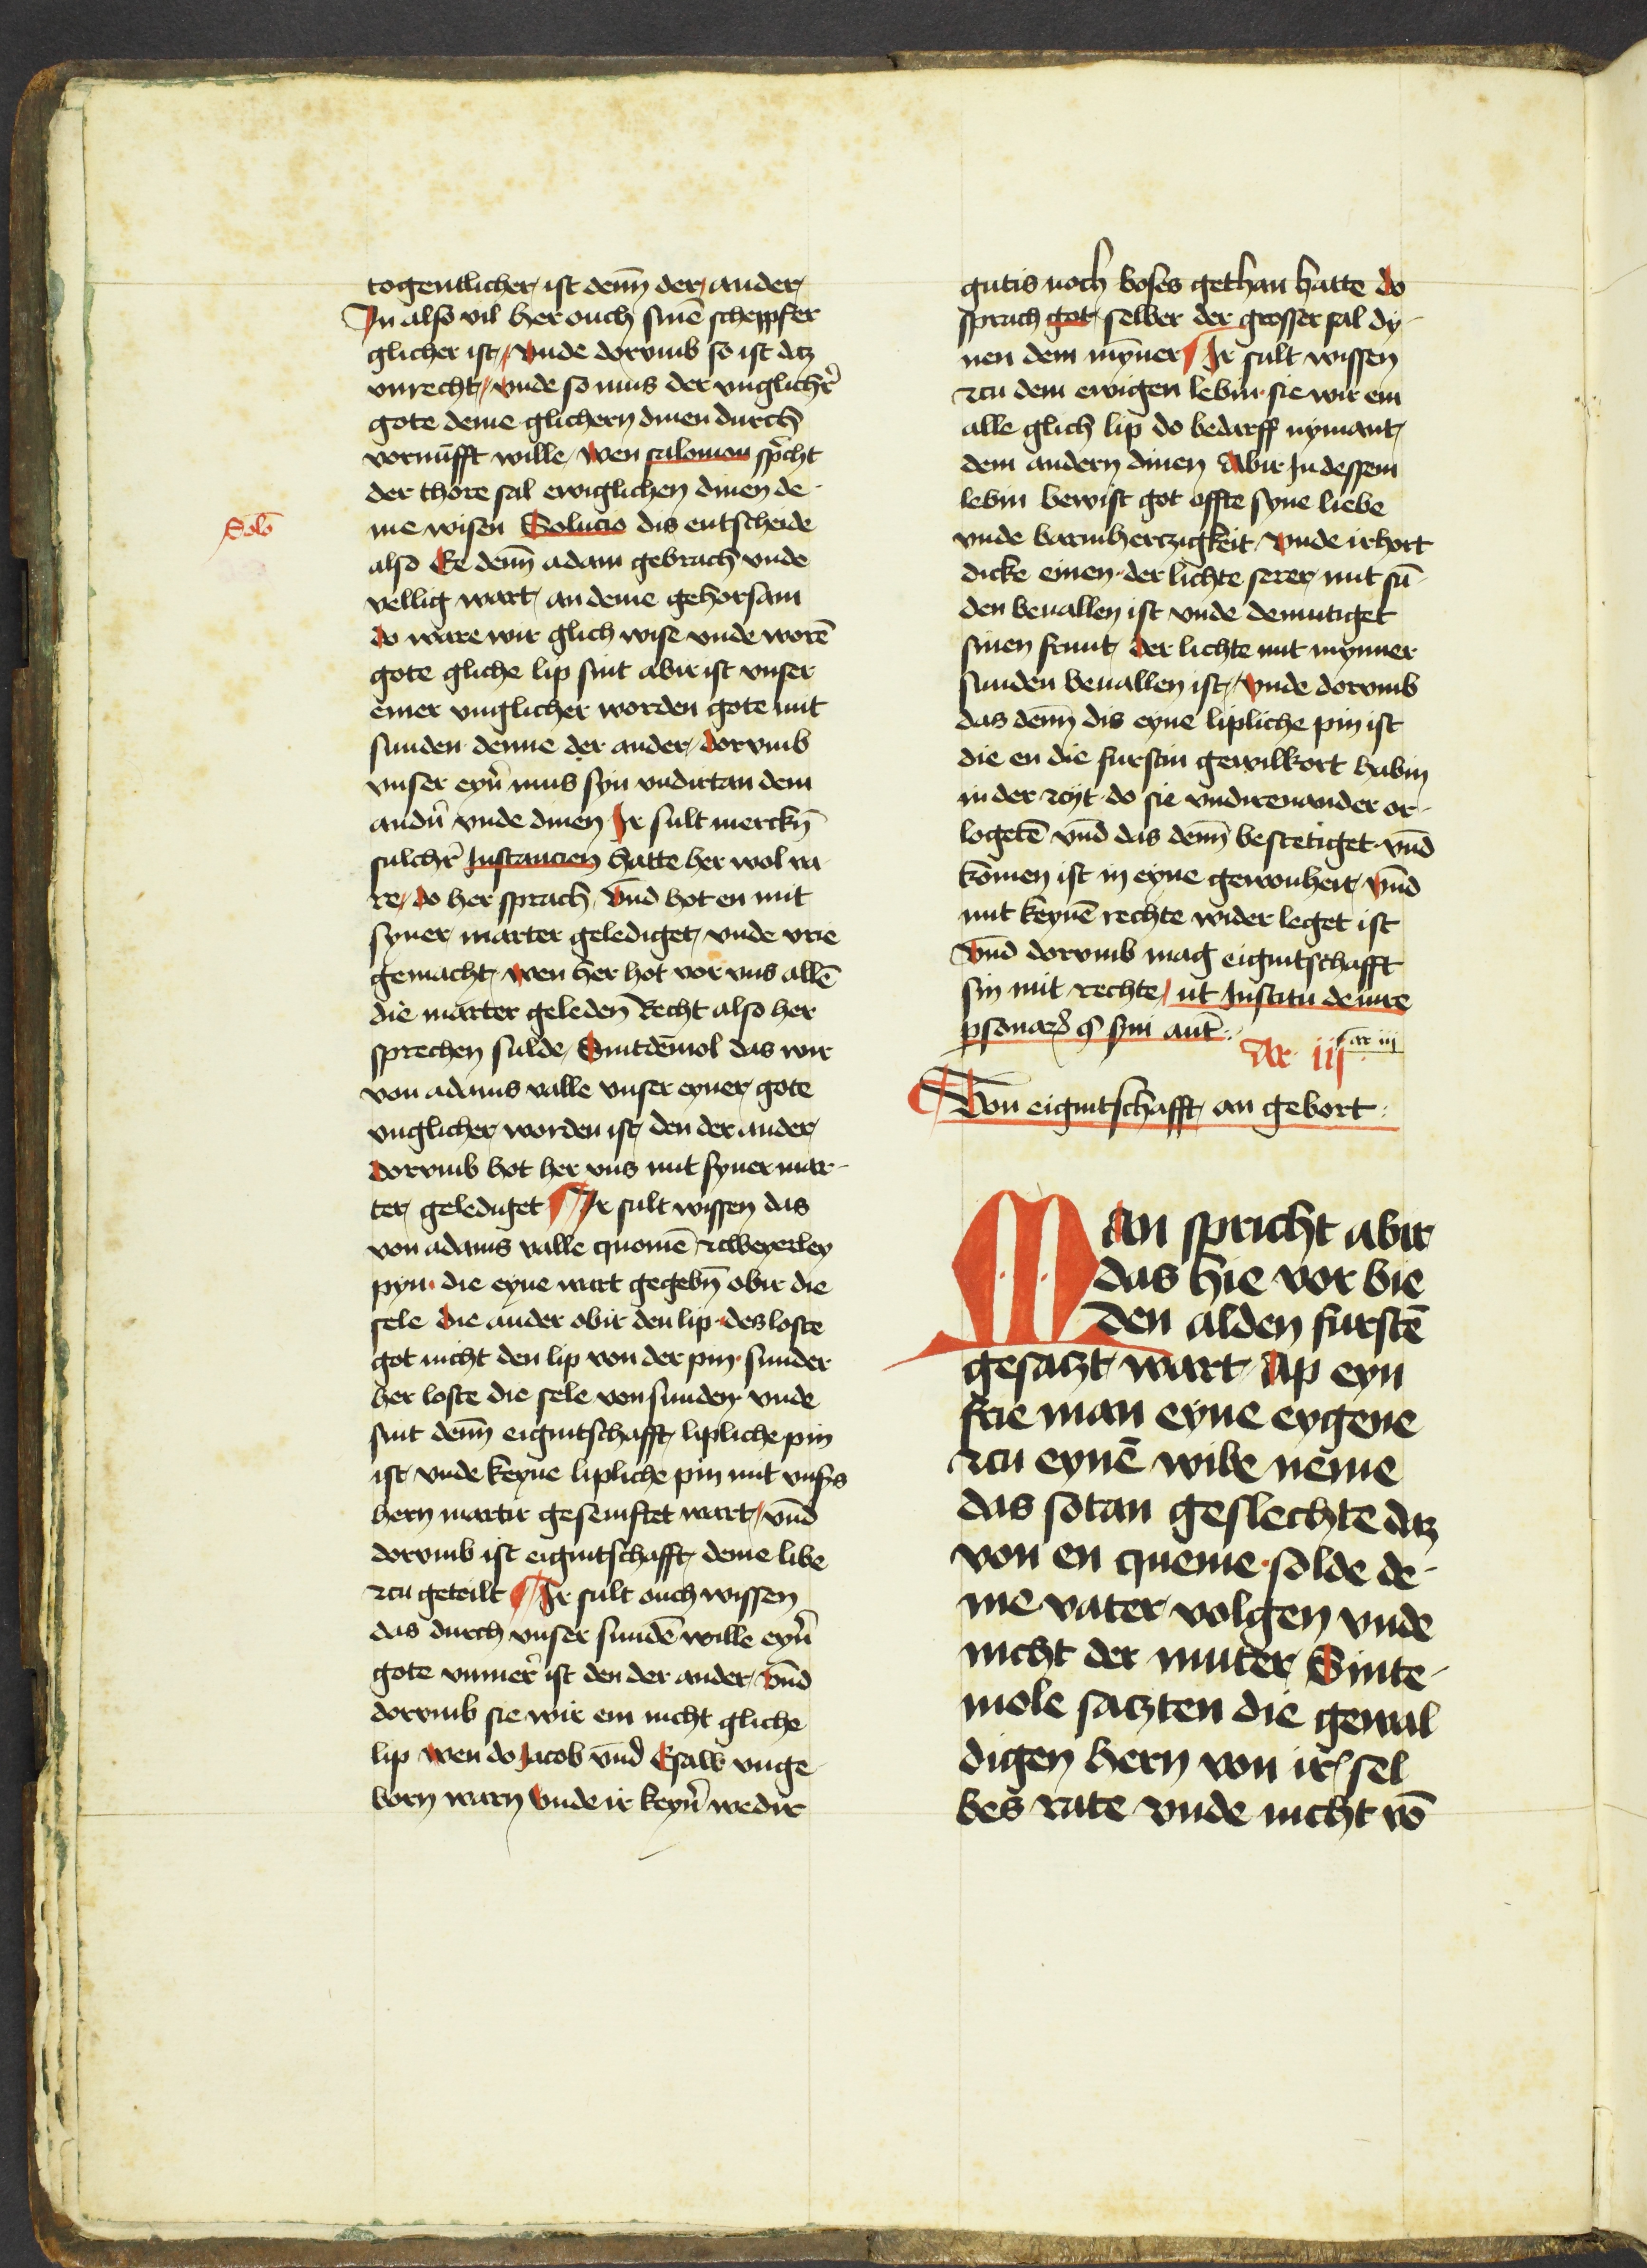 togentlicher ist denn̄ der ander
In also vil her ouch sinē scheppfer
glicher ist vnde dorvmb so ist dz
vnrecht vnde so mus der vnglicher̄
gote deme glichern dinen durch
vornūfft wille wen salomon spricht
der thore sal ewiglichen dinen de-
me wisen Solucio dis entscheide
Solō
also Ee denn̄ adam gebrach vnde
vellig wart an deme gehorsam
do ware wir glich wise vnde worē
gote gliche lip sint abir ist vnser
einer vnglicher worden gote mit
sunden denne der ander dorvmb
vnser eyn̄ mus syn vndirtan dem
andn̄ vnde dinen Ir sult merckn̄
sulchr̄ Instancien hatte her wol va
re do her sprach vnd hot en mit
syner marter gelediget vnde vrie
gemacht wen her hot vor vns allē
die marter geleden Recht also her
sprechen sulde Sintdēmol das wir
von adams valle vnser eyner gote
vnglicher worden ist den der ander
dorvmb hot her vns mit syner mar-
ter gelediget Ir sult wissen das
von adams valle quomē tzweyerley
pyn die eyne wart gegebn̄ obir die
sele die ander obir den lip des loste
got nicht den lip von der pin sunder
her loste die sele von sunden vnde
sint denn̄ eigintschafft lipliche pin
ist vnde keyne lipliche pin mit vnss
hern martir gesenftet wart vnd
dorvmb ist eigintschafft deme libe
tzu geteilt Ir sult ouch wissen
das durch vnser sundē wille eyn̄
gote vnmer̄ ist den der ander vnd
dorvmb sie wir em nicht gliche
lip wen do Jacob vnd Esaw vnge-
born warn vnde ir keyn̄ wedir
gutis noch boses gethan hatte do
sprach got selber der grosser sal dy-
nen dem mȳner Ir sult wissen
tzu dem ewigen lebin sie wir em
alle glich lip do bedarff nymant
dem andern dinen Abir In dessem
lebin bewist got offte syne liebe
vnde barmhertzigkeit vnde irhort
dicke einen der lichte serer mit sū-
den beuallen ist vnde demutiget
sinen frunt der lichte mit mynner
sunden beuallen ist vnde dorvmb
das denn̄ dis eyne lipliche pin ist
die en die furstin gewilkort habin
in der tzyt do sie vndirenander or-
logetē vnd das denn̄ bestetiget vnd
komen ist in eyne gewonheit vnd
mit keynē rechte wider leget ist
vnd dorvmb mag eigintschafft
sin mit rechte ut Institu de iure
psonar̄ § sin aut̄
Ar iij
ar iij
Von eigintschafft an gebort
Man spricht abir
das hie vor bie
den alden furstē
gesatzt wart Ap eyn
frie man eyne eygene
tzu eynē wibe neme
das sotan geslechte dz
von en queme solde de-
me vater volgen vnde
nicht der muter Sinte-
mole satzten die gewal
digen hern von ir sel
bes rate vnde nicht vō